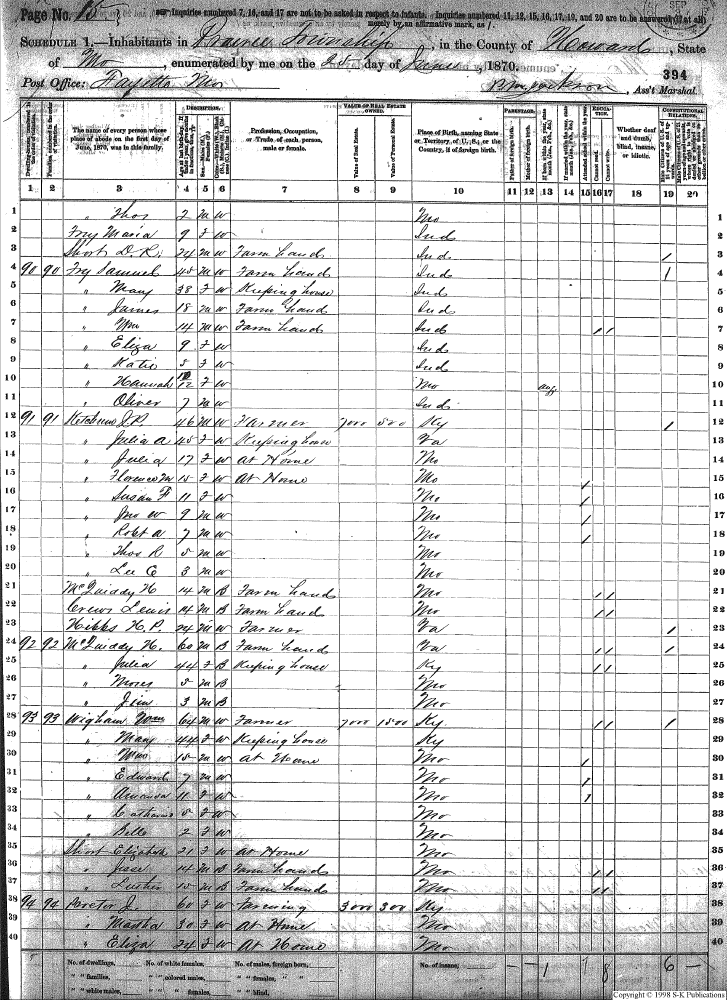 Page No. 15
Inquiries numbered 7, 16, and 17 are not to be asked in respect to infants. Inquiries numbered 11, 12, 15, 16, 17, 19, and 20 are to be answered (if at all)
merely by an affirmative mark, as /.
SCHEDULE 1.—Inhabitants in Prairie Township, in the County of Howard, State
of Mo, enumerated by me on the 25 day of June, 1870.
394
Post Office: Fayette Mo
Ass't Marshal.
DESCRIPTION. VALUE OF REAL ESTATE OWNED. PARENTAGE. EDUCATION. CONSTITUTIONAL RELATIONS.
The name of every person whose place of abode on the first day of June, 1870, was in this family.
Profession, Occupation, or Trade of each person, male or female.
Value of Real Estate. Value of Personal Estate.
Place of Birth, naming State or Territory of U. S.; or the Country, if of foreign birth.
Father of foreign birth. Mother of foreign birth.
Attended school within the year. Cannot read. Cannot write.
Whether deaf and dumb, blind, insane, or idiotic.
1 2 3 4 5 6 7 8 9 10 11 12 13 14 15 16 17 18 19 20
1 " Thos 2 M W Mo 1
2 Fry Maria 9 F W Ind 2
3 Short D. R. 24 M W Farm hand Ind / 3
4 90 90 Fry Samuel 45 M W Farm hand Ind / 4
5 " Mary 38 F W Keeping house Ind 5
6 " James 18 M W Farm hand Ind 6
7 " Wm 14 M W Farm hand Ind / / 7
8 " Eliza 9 F W Ind 8
9 " Katie 5 F W Ind 9
10 " Hannah 12 F W Mo Aug 10
11 " Oliver 7 M W Ind 11
12 91 91 Ketchum J. P. 46 M W Farmer 7000 500 Ky / 12
13 " Julia A 45 F W Keeping house Va 13
14 " Julia 17 F W At Home Mo 14
15 " Florence M 15 F W At Home Mo / 15
16 " Susan F 11 F W Mo / 16
17 " Jno W 9 M W Mo / 17
18 " Robt A 7 M W Mo / 18
19 " Thos R 5 M W Mo 19
20 " Lee C 3 M W Mo 20
21 McQuiddy H 14 M B Farm hand Mo / / 21
22 Crews Lewis 14 M B Farm hand Mo / / 22
23 Hibbs H. P. 24 M W Farmer Va / 23
24 92 92 McQuiddy H. 60 M B Farm hand Va / / / 24
25 " Julia 44 F B Keeping house Ky / / 25
26 " Moses 5 M B Mo 26
27 " Jim 3 M B Mo 27
28 93 93 Wigham Wm 64 M W Farmer 7000 1500 Ky / / / 28
29 " Mary 44 F W Keeping house Ky 29
30 " Wm 15 M W At Home Mo / 30
31 " Edward 7 M W Mo / 31
32 " Amanda 11 F W Mo / 32
33 " Catharine 5 F W Mo 33
34 " Belle 2 F W Mo 34
35 Short Elizabeth 21 F W At Home Mo 35
36 " Jesse 14 M B Farm hand Mo / / 36
37 " 15 M B Farm hand Mo / / 37
38 94 94 Proctor J. 60 F W Farming 3000 300 Ky 38
39 " Martha 30 F W At Home Mo 39
40 " Eliza 24 F W At Home Mo 40
No. of dwellings, No. of white females, No. of males, foreign born, No. of insane,
" " families, " " colored males, " " females, " "
" " white males, " " females, " " blind,
– – 1 7 8 6 –
Copyright © 1998 S-K Publications